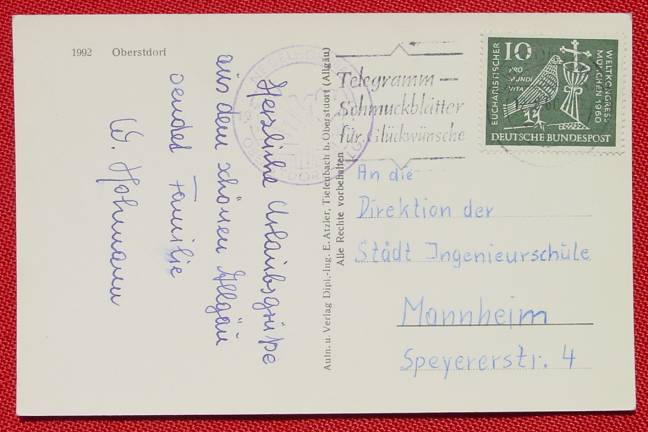 1992 Oberstdorf
Herzliche Urlaubsgrüße
aus dem schönen Allgäu
sendet Familie
W. Hohmann
Aufn. u. Verlag Dipl.-Ing. E. Atzler, Tiefenbach b. Oberstdorf (Allgäu)
Alle Rechte vorbehalten
Telegramm-
Schmuckblätter
für Glückwünsche
10
PRO
MUNDI
VITA
EUCHARISTISCHER
WELTKONGRESS
MÜNCHEN 1960
DEUTSCHE BUNDESPOST
An die
Direktion der
Städt Ingenieurschule
Mannheim
Speyererstr. 4